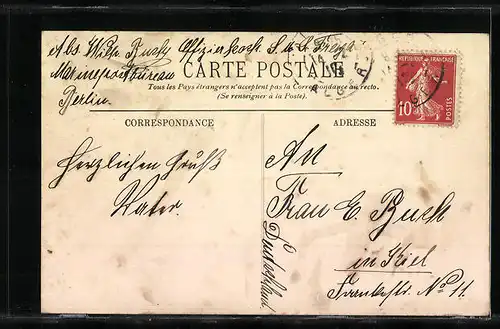 Abs. Wilh. Buch, Offizierkoch S.M.S. Freya
Marinepostbureau
Berlin.
CARTE POSTALE
Tous les Pays étrangers n'acceptent pas la Correspondance au recto.
(Se renseigner à la Poste).
REPUBLIQUE FRANÇAISE
10
POSTES
CORRESPONDANCE
ADRESSE
Herzlichen Gruß
Vater.
An
Frau E. Buch
in Kiel
No 11.
Deutschland